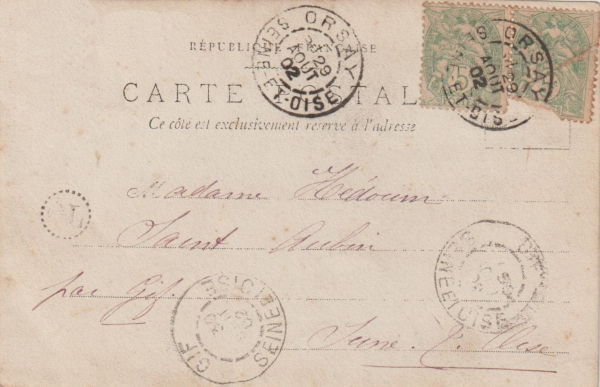 RÉPUBLIQUE FRANÇAISE
CARTE POSTALE
Ce côté est exclusivement réservé à l'adresse
ORSAY
29
AOUT
02
SEINE-ET-OISE
ORSAY
29
AOUT
02
ET-OISE
Madame Hédouin
Saint Aubin
par Gif
Seine & Oise
GIF
SEINE ET OISE
OISE